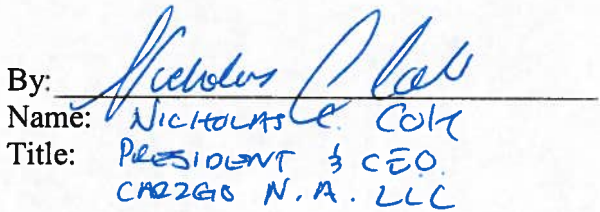 By: Nicholas C. Cole
Name: NICHOLAS C. COLE
Title: PRESIDENT & CEO.
CARZGO N.A. LLC